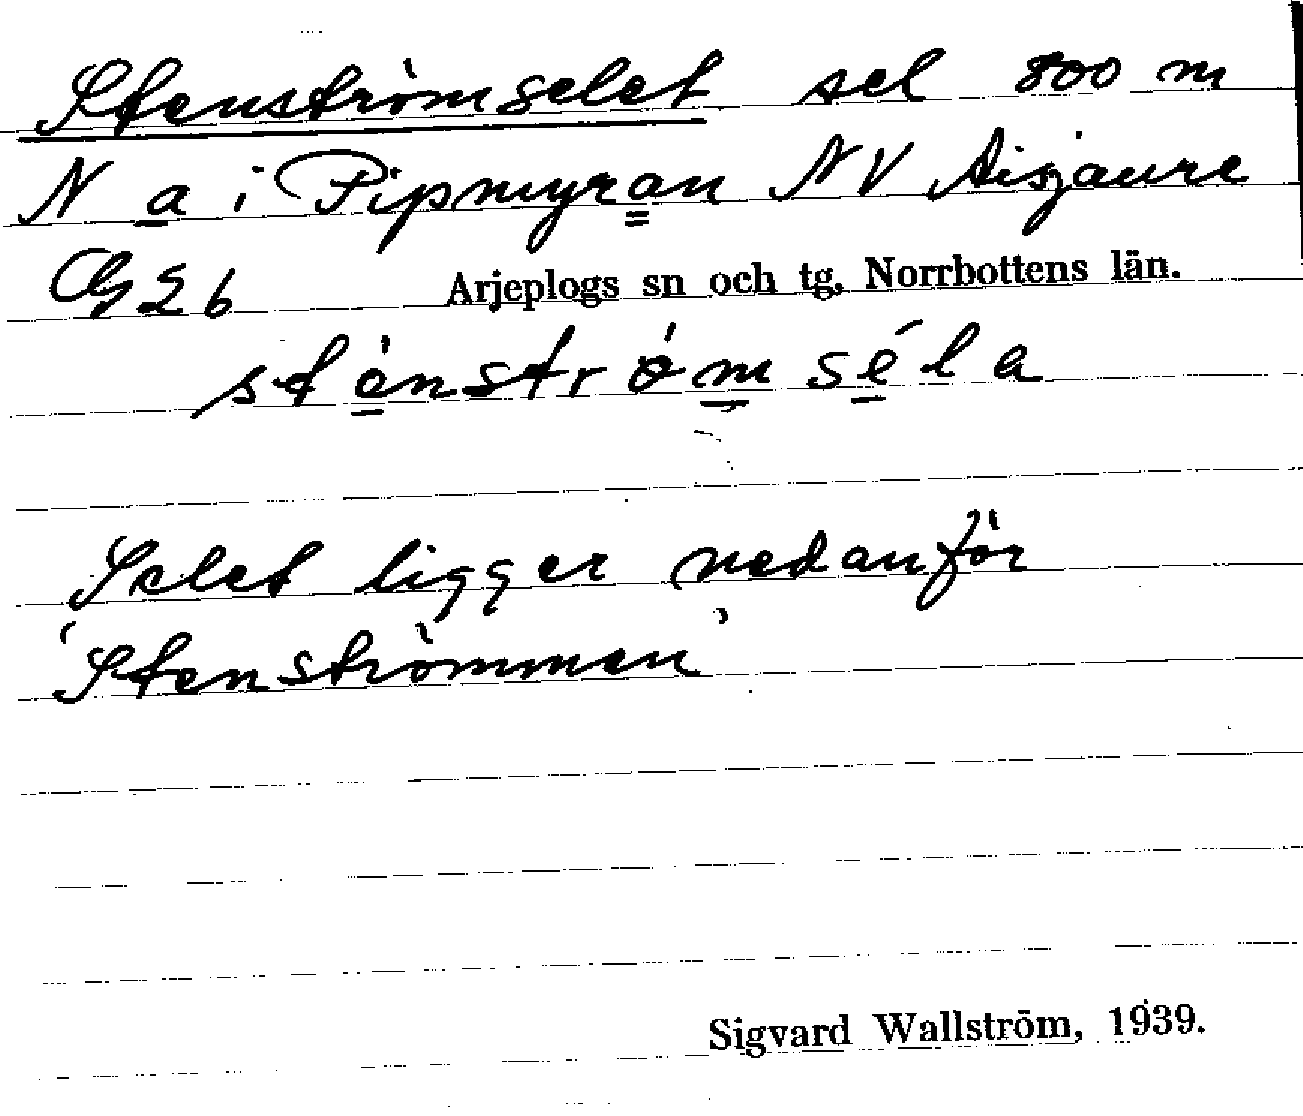 Stenströmselet sel 800 m
N a i Pipmyran NV Aisjaure
Cg 26 Arjeplogs sn och tg, Norrbottens län.
stènström séla
Selet ligger nedanför
'Stenströmmen'
Sigvard Wallström, 1939.